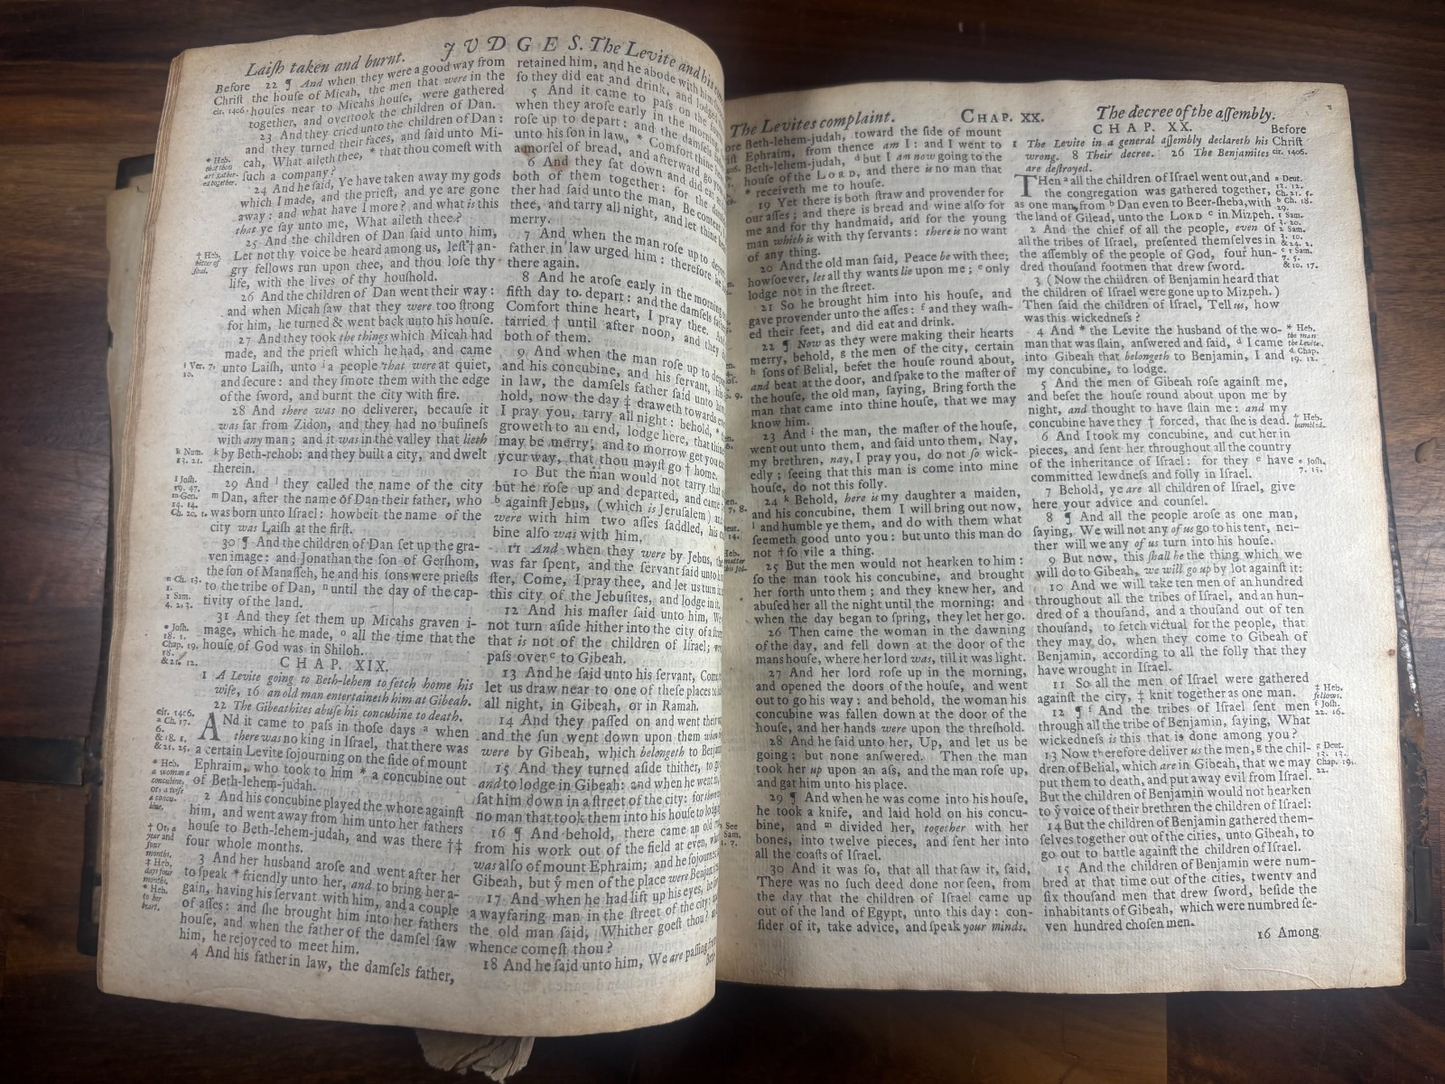 Laiſh taken and burnt. JUDGES. The Levite and his
Before
Chriſt
cir. 1406.
22 ¶ And when they were a good way from
the houſe of Micah, the men that were in the
houſes near to Micahs houſe, were gathered
together, and overtook the children of Dan.
23 And they cried unto the children of Dan :
and they turned their faces, and ſaid unto Mi-
cah, What aileth thee, * that thou comeſt with
ſuch a company?
24 And he ſaid, Ye have taken away my gods
which I made, and the prieſt, and ye are gone
away : and what have I more? and what is this
that ye ſay unto me, What aileth thee?
25 And the children of Dan ſaid unto him,
Let not thy voice be heard among us, leſt † an-
gry fellows run upon thee, and thou loſe thy
life, with the lives of thy houſhold.
26 And the children of Dan went their way :
and when Micah ſaw that they were too ſtrong
for him, he turned & went back unto his houſe.
27 And they took the things which Micah had
made, and the prieſt which he had, and came
unto Laiſh, unto ⁱ a people that were at quiet,
and ſecure : and they ſmote them with the edge
of the ſword, and burnt the city with fire.
28 And there was no deliverer, becauſe it
was far from Zidon, and they had no buſineſs
with any man ; and it was in the valley that lieth
ᵏ by Beth-rehob: and they built a city, and dwelt
therein.
29 And ˡ they called the name of the city
ᵐ Dan, after the name of Dan their father, who
was born unto Iſrael : howbeit the name of the
city was Laiſh at the firſt.
30 ¶ And the children of Dan ſet up the gra-
ven image : and Jonathan the ſon of Gerſhom,
the ſon of Manaſſeh, he and his ſons were prieſts
to the tribe of Dan, ⁿ until the day of the cap-
tivity of the land.
31 And they ſet them up Micahs graven i-
mage, which he made, ᵒ all the time that the
houſe of God was in Shiloh.
CHAP. XIX.
1 A Levite going to Beth-lehem to fetch home his
wife, 16 an old man entertaineth him at Gibeah.
22 The Gibeathites abuſe his concubine to death.
ANd it came to paſs in thoſe days ᵃ when
there was no king in Iſrael, that there was
a certain Levite ſojourning on the ſide of mount
Ephraim, who took to him * a concubine out
of Beth-lehem-judah.
2 And his concubine played the whore againſt
him, and went away from him unto her fathers
houſe to Beth-lehem-judah, and was there †‡
four whole months.
3 And her husband aroſe and went after her
to ſpeak * friendly unto her, and to bring her a-
gain, having his ſervant with him, and a couple
of aſſes : and ſhe brought him into her fathers
houſe, and when the father of the damſel ſaw
him, he rejoyced to meet him.
4 And his father in law, the damſels father,
* Heb.
that thou
art gather-
ed together.
† Heb.
bitter of
ſoul.
i Ver. 7,
10.
k Num.
13. 21.
l Joſh.
19. 47.
m Gen.
14. 14.
Ch. 20. 1.
n Ch. 13.
1.
1 Sam.
4. 2, 3.
o Joſh.
18. 1.
Chap. 19.
18.
& 21. 12.
cir. 1406.
a Ch. 17.
6.
& 18. 1.
& 21. 25.
* Heb.
a woman a
concubine,
or, a wife
a concu-
bine.
† Or, a
year and
four
months.
‡ Heb.
days four
months.
* Heb.
to her
heart.
retained him, and he abode with him
ſo they did eat and drink, and lodged
5 And it came to paſs on the
when they aroſe early in the morning
roſe up to depart : and the damſels
unto his ſon in law, * Comfort thine
a morſel of bread, and afterward go
6 And they ſat down and did eat
both of them together : for the
ther had ſaid unto the man, Be content
thee, and tarry all night, and let thine
merry.
7 And when the man roſe up to depart
father in law urged him : therefore
there again.
8 And he aroſe early in the morning
fifth day to depart : and the damſels
Comfort thine heart, I pray thee. And
tarried † until after noon, and they
both of them.
9 And when the man roſe up to depart
and his concubine, and his ſervant, his
in law, the damſels father ſaid unto him
hold, now the day ‡ draweth towards
I pray you, tarry all night : behold, *
groweth to an end, lodge here, that thine
may be merry; and to morrow get you
your way, that thou mayſt go † home.
10 But the man would not tarry that
but he roſe up and departed, and came
ᵇ againſt Jebus, (which is Jeruſalem) and
were with him two aſſes ſaddled, his
bine alſo was with him.
11 And when they were by Jebus, the
was far ſpent, and the ſervant ſaid unto
ſter, Come, I pray thee, and let us turn
this city of the Jebuſites, and lodge in it.
12 And his maſter ſaid unto him, We
not turn aſide hither into the city of a
that is not of the children of Iſrael; we
paſs over ᶜ to Gibeah.
13 And he ſaid unto his ſervant, Come
let us draw near to one of theſe places to
all night, in Gibeah, or in Ramah.
14 And they paſſed on and went their
and the ſun went down upon them when
were by Gibeah, which belongeth to Benja-
15 And they turned aſide thither, to go
and to lodge in Gibeah : and when he went
ſat him down in a ſtreet of the city : for there
no man that took them into his houſe to lodge
16 ¶ And behold, there came an old
from his work out of the field at even, which
was alſo of mount Ephraim; and he ſojourned
Gibeah, but ẙ men of the place were Benjamites
17 And when he had lift up his eyes, he
a wayfaring man in the ſtreet of the city : and
the old man ſaid, Whither goeſt thou? and
whence comeſt thou?
18 And he ſaid unto him, We are paſſing from
Beth-
The Levites complaint. CHAP. XX. The decree of the aſſembly.
Beth-lehem-judah, toward the ſide of mount
Ephraim, from thence am I : and I went to
Beth-lehem-judah, ᵈ but I am now going to the
houſe of the LORD, and there is no man that
* receiveth me to houſe.
19 Yet there is both ſtraw and provender for
our aſſes; and there is bread and wine alſo for
me and for thy handmaid, and for the young
man which is with thy ſervants : there is no want
of any thing.
20 And the old man ſaid, Peace be with thee;
howſoever, let all thy wants lie upon me; ᵉ only
lodge not in the ſtreet.
21 So he brought him into his houſe, and
gave provender unto the aſſes : ᶠ and they waſh-
ed their feet, and did eat and drink.
22 ¶ Now as they were making their hearts
merry, behold, ᵍ the men of the city, certain
ʰ ſons of Belial, beſet the houſe round about,
and beat at the door, and ſpake to the maſter of
the houſe, the old man, ſaying, Bring forth the
man that came into thine houſe, that we may
know him.
23 And ⁱ the man, the maſter of the houſe,
went out unto them, and ſaid unto them, Nay,
my brethren, nay, I pray you, do not ſo wick-
edly ; ſeeing that this man is come into mine
houſe, do not this folly.
24 ᵏ Behold, here is my daughter a maiden,
and his concubine, them I will bring out now,
ˡ and humble ye them, and do with them what
ſeemeth good unto you : but unto this man do
not † ſo vile a thing.
25 But the men would not hearken to him :
ſo the man took his concubine, and brought
her forth unto them ; and they knew her, and
abuſed her all the night until the morning: and
when the day began to ſpring, they let her go.
26 Then came the woman in the dawning
of the day, and fell down at the door of the
mans houſe, where her lord was, till it was light.
27 And her lord roſe up in the morning,
and opened the doors of the houſe, and went
out to go his way : and behold, the woman his
concubine was fallen down at the door of the
houſe, and her hands were upon the threſhold.
28 And he ſaid unto her, Up, and let us be
going : but none anſwered. Then the man
took her up upon an aſs, and the man roſe up,
and gat him unto his place.
29 ¶ And when he was come into his houſe,
he took a knife, and laid hold on his concu-
bine, and ᵐ divided her, together with her
bones, into twelve pieces, and ſent her into
all the coaſts of Iſrael.
30 And it was ſo, that all that ſaw it, ſaid,
There was no ſuch deed done nor ſeen, from
the day that the children of Iſrael came up
out of the land of Egypt, unto this day : con-
ſider of it, take advice, and ſpeak your minds.
CHAP. XX.
1 The Levite in a general aſſembly declareth his
wrong. 8 Their decree. 26 The Benjamites
are deſtroyed.
THen ᵃ all the children of Iſrael went out, and
the congregation was gathered together,
as one man, from ᵇ Dan even to Beer-ſheba, with
the land of Gilead, unto the LORD ᶜ in Mizpeh.
2 And the chief of all the people, even of
all the tribes of Iſrael, preſented themſelves in
the aſſembly of the people of God, four hun-
dred thouſand footmen that drew ſword.
3 (Now the children of Benjamin heard that
the children of Iſrael were gone up to Mizpeh.)
Then ſaid the children of Iſrael, Tell us, how
was this wickedneſs ?
4 And * the Levite the husband of the wo-
man that was ſlain, anſwered and ſaid, ᵈ I came
into Gibeah that belongeth to Benjamin, I and
my concubine, to lodge.
5 And the men of Gibeah roſe againſt me,
and beſet the houſe round about upon me by
night, and thought to have ſlain me : and my
concubine have they † forced, that ſhe is dead.
6 And I took my concubine, and cut her in
pieces, and ſent her throughout all the country
of the inheritance of Iſrael : for they ᵉ have
committed lewdneſs and folly in Iſrael.
7 Behold, ye are all children of Iſrael, give
here your advice and counſel.
8 ¶ And all the people aroſe as one man,
ſaying, We will not any of us go to his tent, nei-
ther will we any of us turn into his houſe.
9 But now, this ſhall be the thing which we
will do to Gibeah, we will go up by lot againſt it:
10 And we will take ten men of an hundred
throughout all the tribes of Iſrael, and an hun-
dred of a thouſand, and a thouſand out of ten
thouſand, to fetch victual for the people, that
they may do, when they come to Gibeah of
Benjamin, according to all the folly that they
have wrought in Iſrael.
11 So all the men of Iſrael were gathered
againſt the city, ‡ knit together as one man.
12 ¶ ᶠ And the tribes of Iſrael ſent men
through all the tribe of Benjamin, ſaying, What
wickedneſs is this that is done among you?
13 Now therefore deliver us the men, ᵍ the chil-
dren of Belial, which are in Gibeah, that we may
put them to death, and put away evil from Iſrael.
But the children of Benjamin would not hearken
to ẙ voice of their brethren the children of Iſrael:
14 But the children of Benjamin gathered them-
ſelves together out of the cities, unto Gibeah, to
go out to battle againſt the children of Iſrael.
15 And the children of Benjamin were num-
bred at that time out of the cities, twenty and
ſix thouſand men that drew ſword, beſide the
inhabitants of Gibeah, which were numbred ſe-
ven hundred choſen men.
16 Among
Before
Chriſt
cir. 1406.
a Deut.
13. 12.
Ch. 21. 5.
b Ch. 18.
29.
1 Sam.
3. 20.
2 Sam.
3. 10.
& 24. 2.
c 1 Sam.
7. 5.
& 10. 17.
* Heb.
the man
the Levite.
d Chap.
19. 12.
† Heb.
humbled.
e Joſh.
7. 15.
‡ Heb.
fellows.
f Joſh.
22. 16.
g Deut.
13. 13.
Chap. 19.
22.